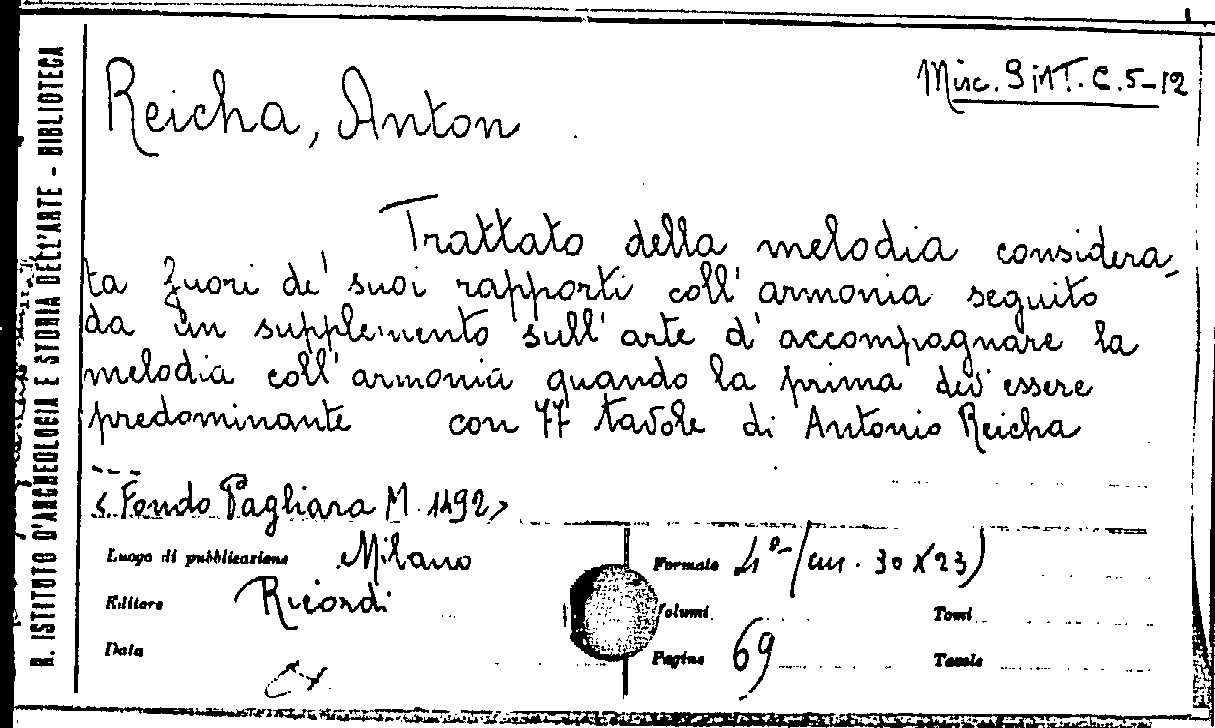 R. ISTITUTO D'ARCHEOLOGIA E STORIA DELL'ARTE - BIBLIOTECA
Reicha, Anton
Misc. S MT. C. 5-12
Trattato della melodia considera,
ta fuori de' suoi rapporti coll' armonia seguito
da un supplemento sull' arte d' accompagnare la
melodia coll' armonia quando la prima dev' essere
predominante con 77 tavole di Antonio Reicha
< Fondo Pagliara M. 1492 >
Luogo di pubblicazione Milano
Formato 4º (cm. 30 x 23)
Editore Ricordi
Volumi
Tomi
Data
Pagine 69
Tavole